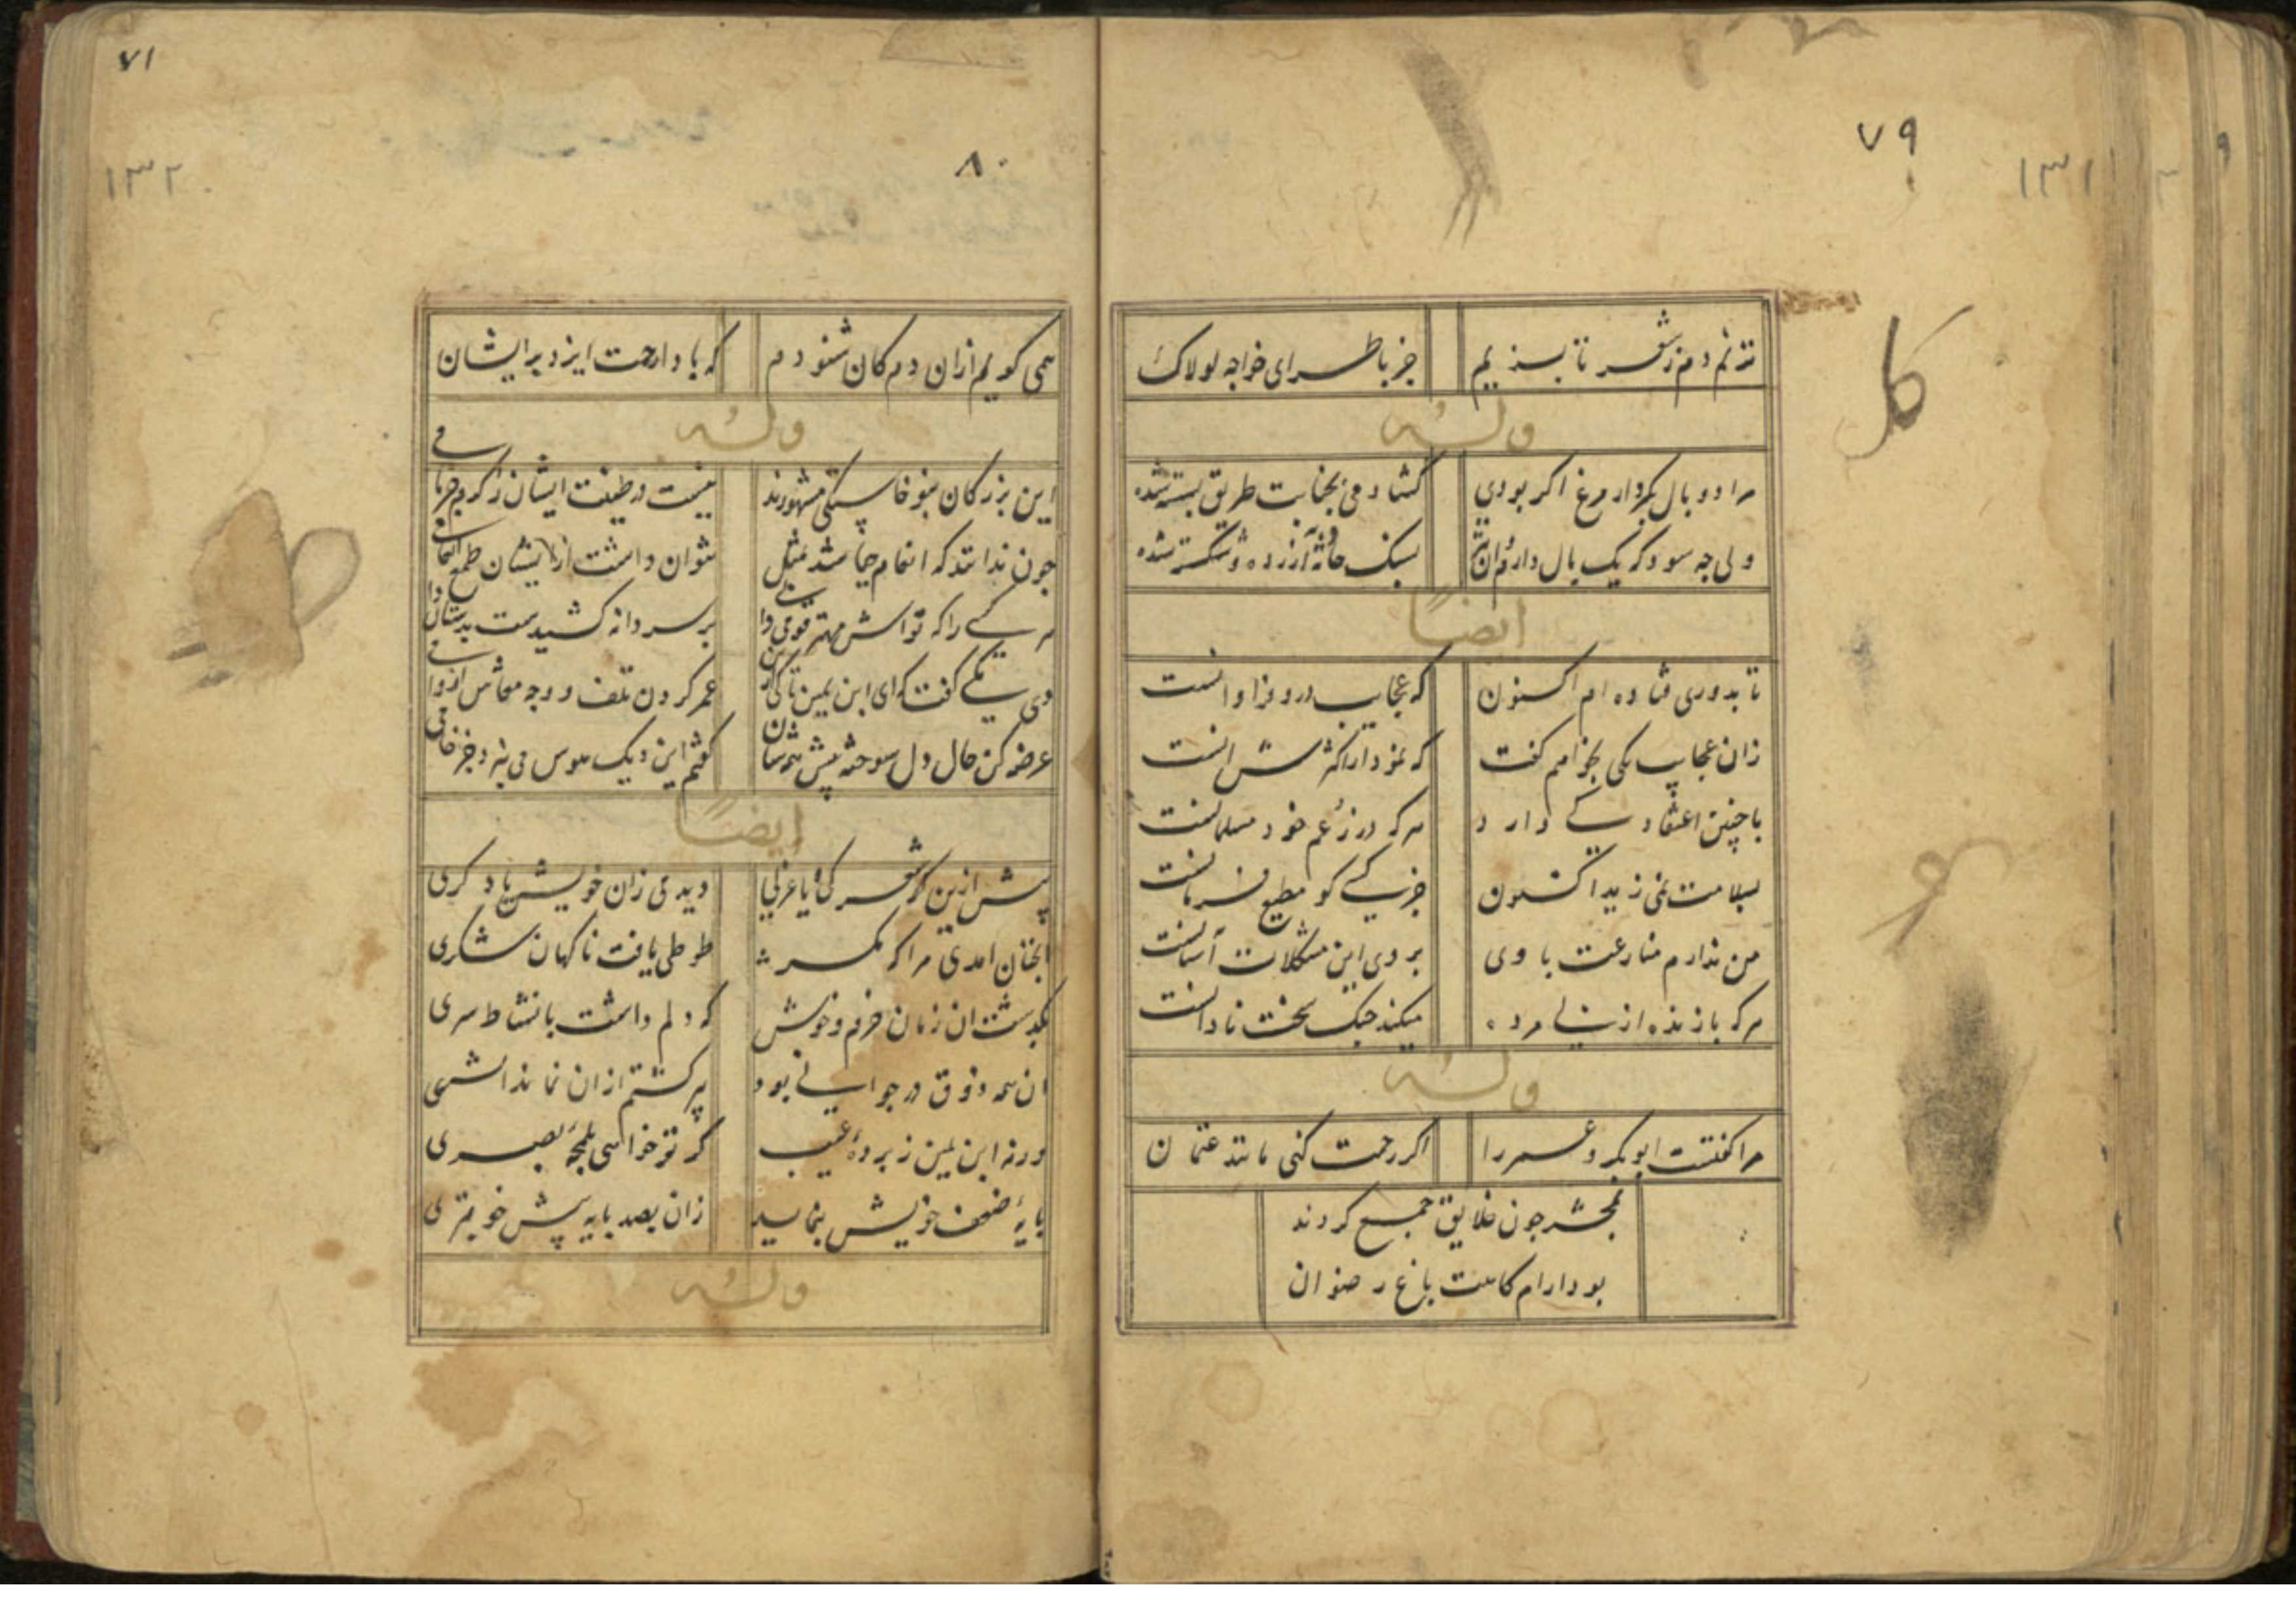 ۷۹
۱۳۱
کل
نزنم دم ز شعر تا بزیم جز باطرای خواجه لولاک
وله
مرا دو بال بکردار مرغ اکر بودی کشادمی بجنابت طریق بسته شده
ولی چه سود که یک بال دارم و ان نیز بسنک حادثه آزرده و شکسته شده
ایضاً
تا بدوری فتاده ام اکنون که عجایب درو فراوانست
زان عجایب یکی بخواهم کفت که نمودار اکثرش انست
با چنین اعتقاد کسی دارد هر که در زعم خود مسلمانست
بسلامت نمی زید اکنون جز کسی کو مطیع فرمانست
من ندارم منازعت با وی بروی این مشکلات آسانست
هر که با زنده از پی مرده میکند جنک سخت نادانست
وله
مرا کفتست ابوبکر و عمر را اکر رحمت کنی مانند عثمان
بمحشر چون خلایق جمع کردند
بود ارام کاهت باغ رضوان
۷۱
۸۰
۱۳۲
همی کویم ازان دم کان شنودم که بادا رحمت ایزد بر ایشان
وله
این بزرکان بنوخاستکی مشهورند نیست در طینت ایشان ز کرم جز نامی
چون ندانند که انعام چه باشد بمثل نتوان داشت ازایشان طمع انعامی
هر کسی را که تو اش مهتر قومی دانی بر سر دانه کشیدست بدستان دامی
دی یکی کفت که ای ابن یمین تا کی ازین عمر کردن تلف و وجه معاش از وامی
عرضه کن حال دل سوخته پیش همشان کفتم این دیک هوس می نپزد جز خامی
ایضاً
پیش ازین کر شعر کی و یا غزلی دیدی زان خویش یاد کری
انچنان امدی مرا که مکر طوطی یافت ناکهان شکری
بکذشت ان زمان خرم و خوش که دلم داشت با نشاط سری
ان همه ذوق در جوانی بود پیر کشتم ازان نماند اثری
ورنه ابن یمین ز پرده غیب کر تو خواهی بلمحه بصری
پایه ضعف خویش بنماید زان بصد پایه پیش خوبتری
وله